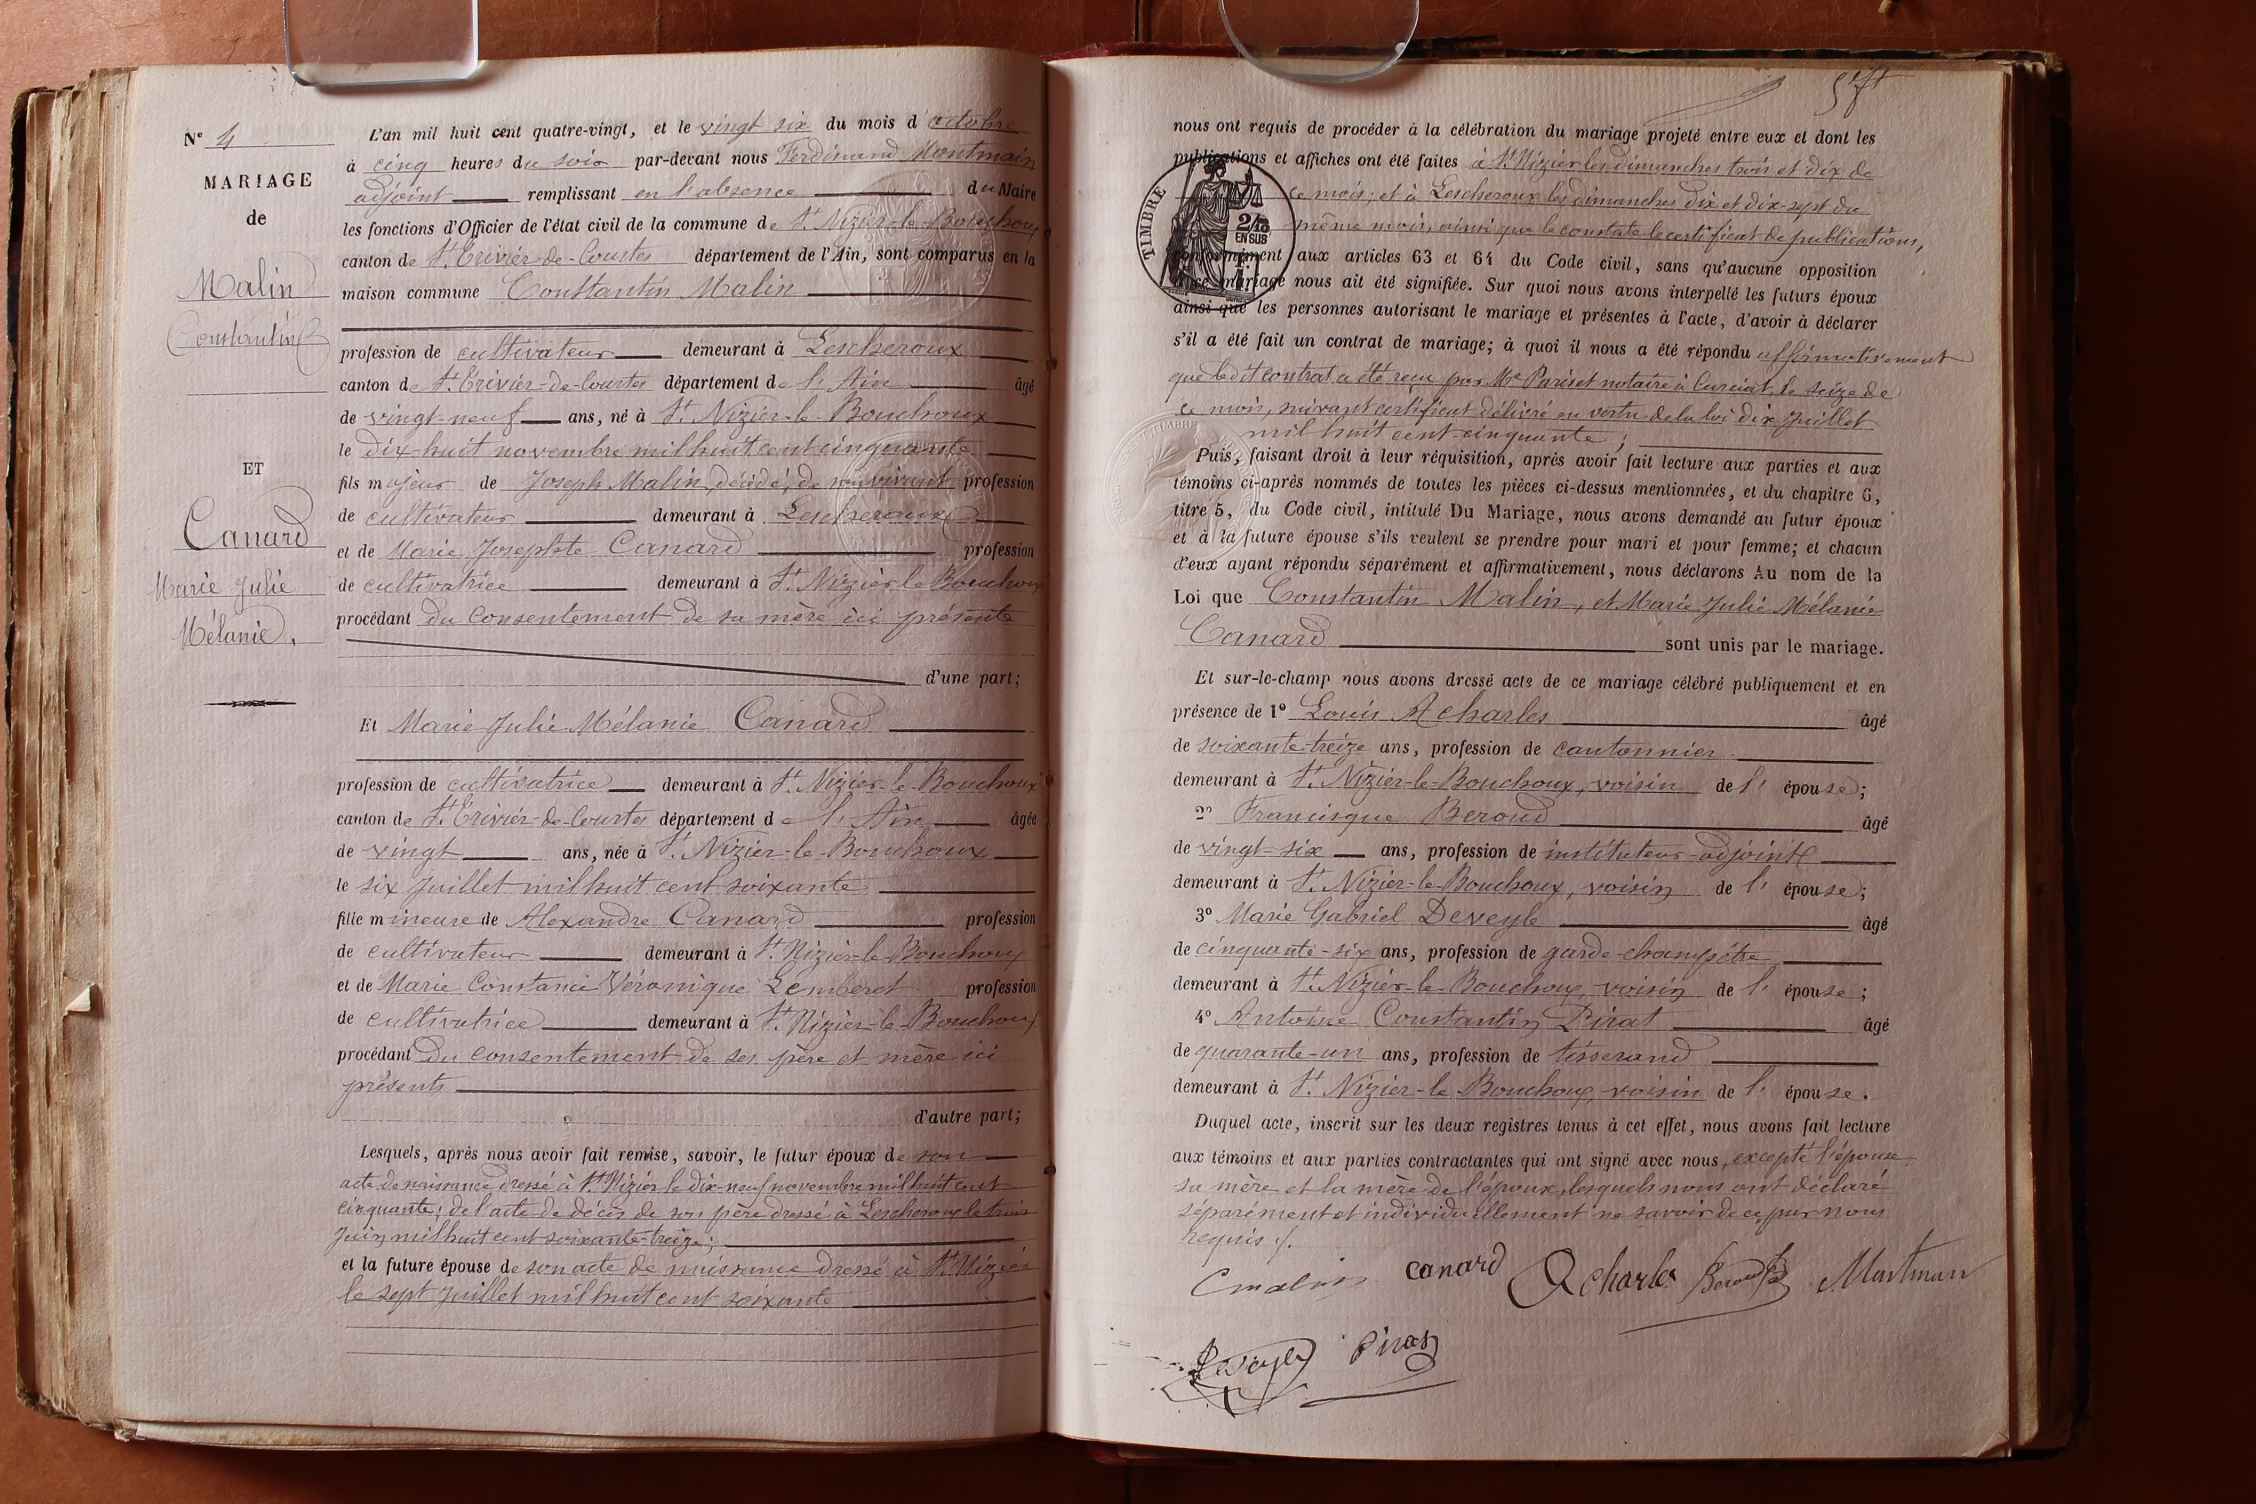 N° 4
MARIAGE
de
Malin
Constantin
ET
Canard
Marie Julie
Mélanie.
L'an mil huit cent quatre-vingt, et le vingt six du mois d'octobre
à cinq heures du soir par-devant nous Ferdinand Montmain
adjoint remplissant en l'absence du Maire
les fonctions d'Officier de l'état civil de la commune de St Nizier-le-Bouchoux
canton de St Trivier-de-Courtes département de l'Ain, sont comparus en la
maison commune Constantin Malin
profession de cultivateur demeurant à Lescheroux
canton de St Trivier-de-Courtes département de l'Ain âgé
de vingt-neuf ans, né à St Nizier-le-Bouchoux
le dix-huit novembre mil huit cent cinquante
fils majeur de Joseph Malin, décédé, de son vivant profession
de cultivateur demeurant à Lescheroux
et de Marie Josephte Canard profession
de cultivatrice demeurant à St Nizier le Bouchoux
procédant du consentement de sa mère ici présente
d'une part;
Et Marie Julie Mélanie Canard
profession de cultivatrice demeurant à St Nizier-le-Bouchoux
canton de St Trivier-de-Courtes département de l'Ain âgée
de vingt ans, née à St Nizier-le-Bouchoux
le six Juillet mil huit cent soixante
fille mineure de Alexandre Canard profession
de cultivateur demeurant à St Nizier-le-Bouchoux
et de Marie Constance Véronique Lemberet profession
de cultivatrice demeurant à St Nizier-le-Bouchoux
procédant du consentement de ses père et mère ici
présents
d'autre part;
Lesquels, après nous avoir fait remise, savoir, le futur époux de son
acte de naissance dressé à St Nizier le dix-neuf novembre mil huit cent
cinquante; de l'acte de décès de son père dressé à Lescheroux le trois
Juin mil huit cent soixante-treize;
et la future épouse de son acte de naissance dressé à St Nizier
le sept Juillet mil huit cent soixante
nous ont requis de procéder à la célébration du mariage projeté entre eux et dont les
publications et affiches ont été faites à St Nizier les dimanches trois et dix de
ce mois, et à Lescheroux les dimanches dix et dix-sept du
même mois, ainsi que le constate le certificat de publications,
TIMBRE
2/10
EN SUS
conformément aux articles 63 et 64 du Code civil, sans qu'aucune opposition
à ce mariage nous ait été signifiée. Sur quoi nous avons interpellé les futurs époux
ainsi que les personnes autorisant le mariage et présentes à l'acte, d'avoir à déclarer
s'il a été fait un contrat de mariage; à quoi il nous a été répondu affirmativement
que le dit contrat a été reçu par Me Pariset notaire à Curciat, le seize de
ce mois, suivant certificat délivré en vertu de la loi dix Juillet
mil huit cent cinquante;
Puis, faisant droit à leur réquisition, après avoir fait lecture aux parties et aux
témoins ci-après nommés de toutes les pièces ci-dessus mentionnées, et du chapitre 6,
titre 5, du Code civil, intitulé Du Mariage, nous avons demandé au futur époux
et à la future épouse s'ils veulent se prendre pour mari et pour femme; et chacun
d'eux ayant répondu séparément et affirmativement, nous déclarons Au nom de la
Loi que Constantin Malin, et Marie Julie Mélanie
Canard sont unis par le mariage.
Et sur-le-champ nous avons dressé acte de ce mariage célébré publiquement et en
présence de 1° Louis Acharles âgé
de soixante-treize ans, profession de cantonnier
demeurant à St Nizier-le-Bouchoux, voisin de l'épouse;
2° Francisque Beroud âgé
de vingt-six ans, profession de instituteur-adjoint
demeurant à St Nizier-le-Bouchoux, voisin de l'épouse;
3° Marie Gabriel Deveyle âgé
de cinquante-six ans, profession de garde-champêtre
demeurant à St Nizier-le-Bouchoux, voisin de l'épouse;
4° Antoine Constantin Pirat âgé
de quarante-un ans, profession de tisserand
demeurant à St Nizier-le-Bouchoux, voisin de l'épouse.
Duquel acte, inscrit sur les deux registres tenus à cet effet, nous avons fait lecture
aux témoins et aux parties contractantes qui ont signé avec nous, excepté l'épouse
sa mère et la mère de l'époux, lesquels nous ont déclaré
séparément et individuellement ne savoir de ce par nous
requis ./.
C malin canard Acharles Beroud Montmain
Deveyle Pirat